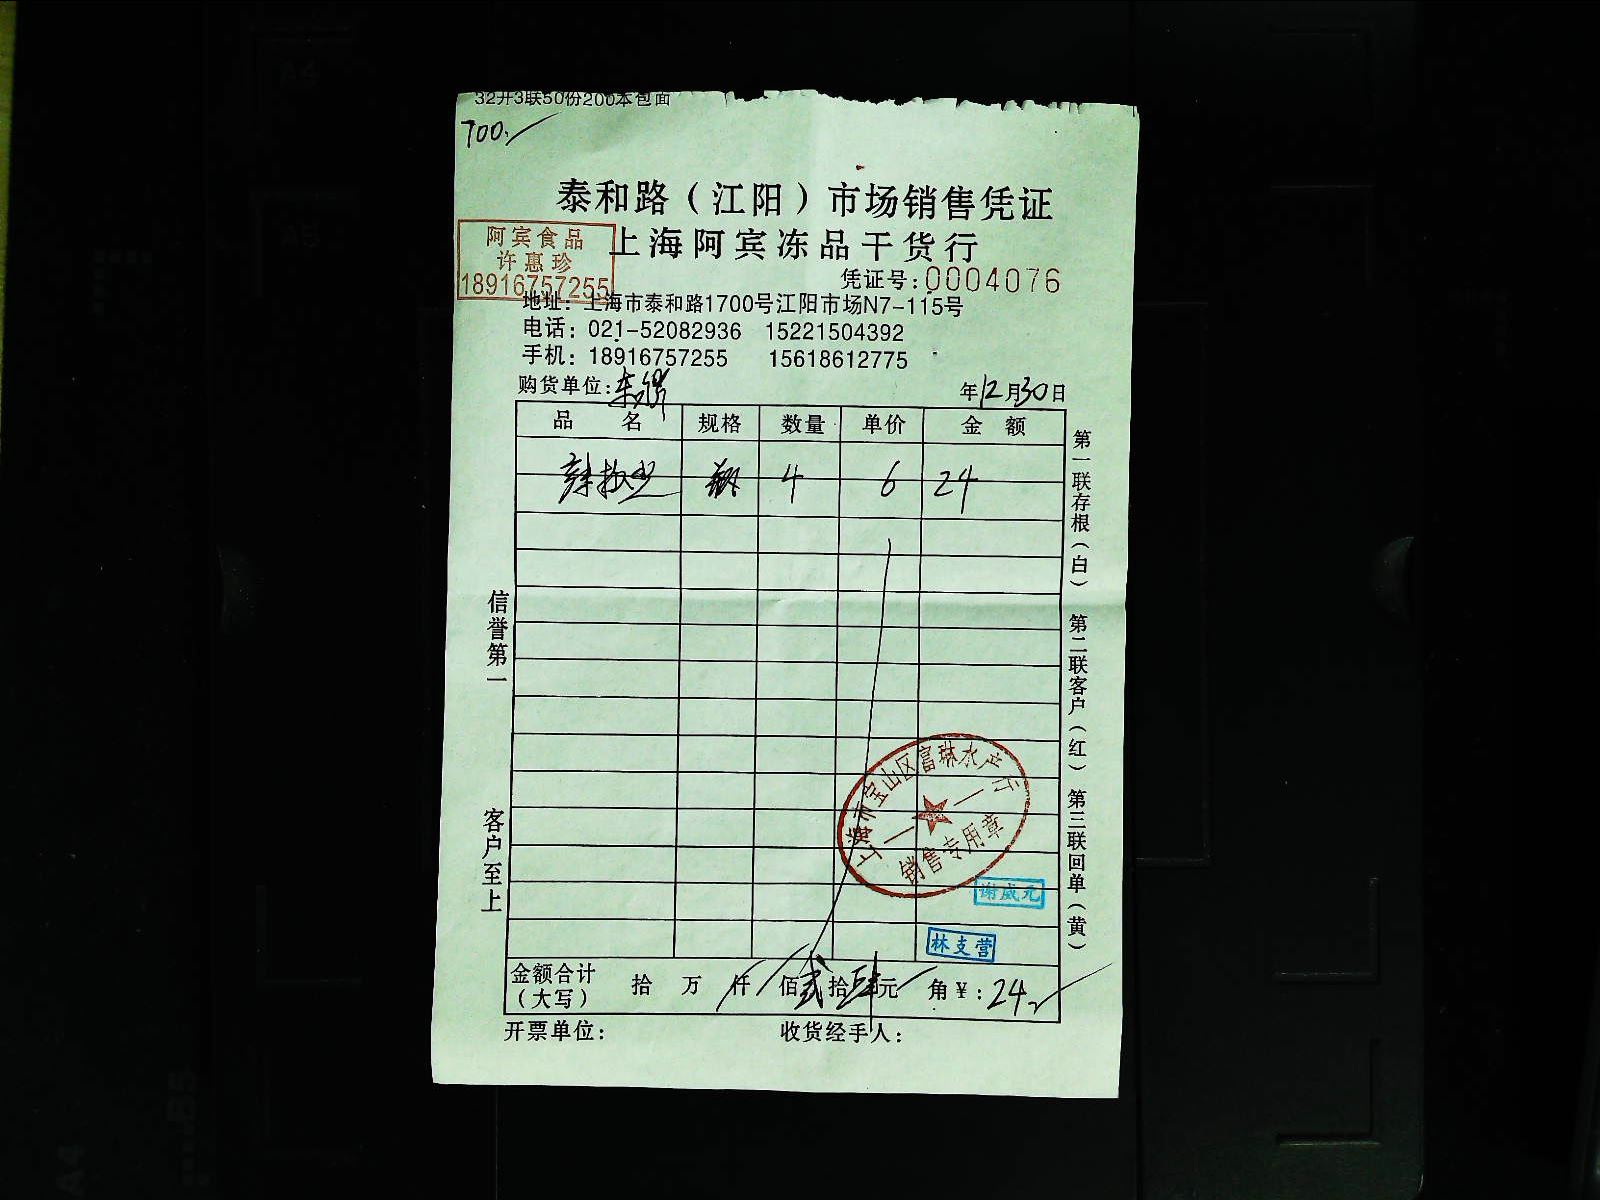 32开3联50份200本包面
700.
泰和路（江阳）市场销售凭证
上海阿宾冻品干货行
阿宾食品
许惠珍
18916757255
凭证号：0004076
地址：上海市泰和路1700号江阳市场N7-115号
电话：021-52082936 15221504392
手机：18916757255 15618612775
购货单位：
年12月30日
品名 规格 数量 单价 金额
辣椒 4 6 24
第一联存根（白） 第二联客户（红） 第三联回单（黄）
信誉第一
客户至上
上海市宝山区富琳水产行
销售专用章
谢威元
林支营
金额合计（大写） 拾 万 仟 佰贰拾肆元 角￥：24
开票单位： 收货经手人：